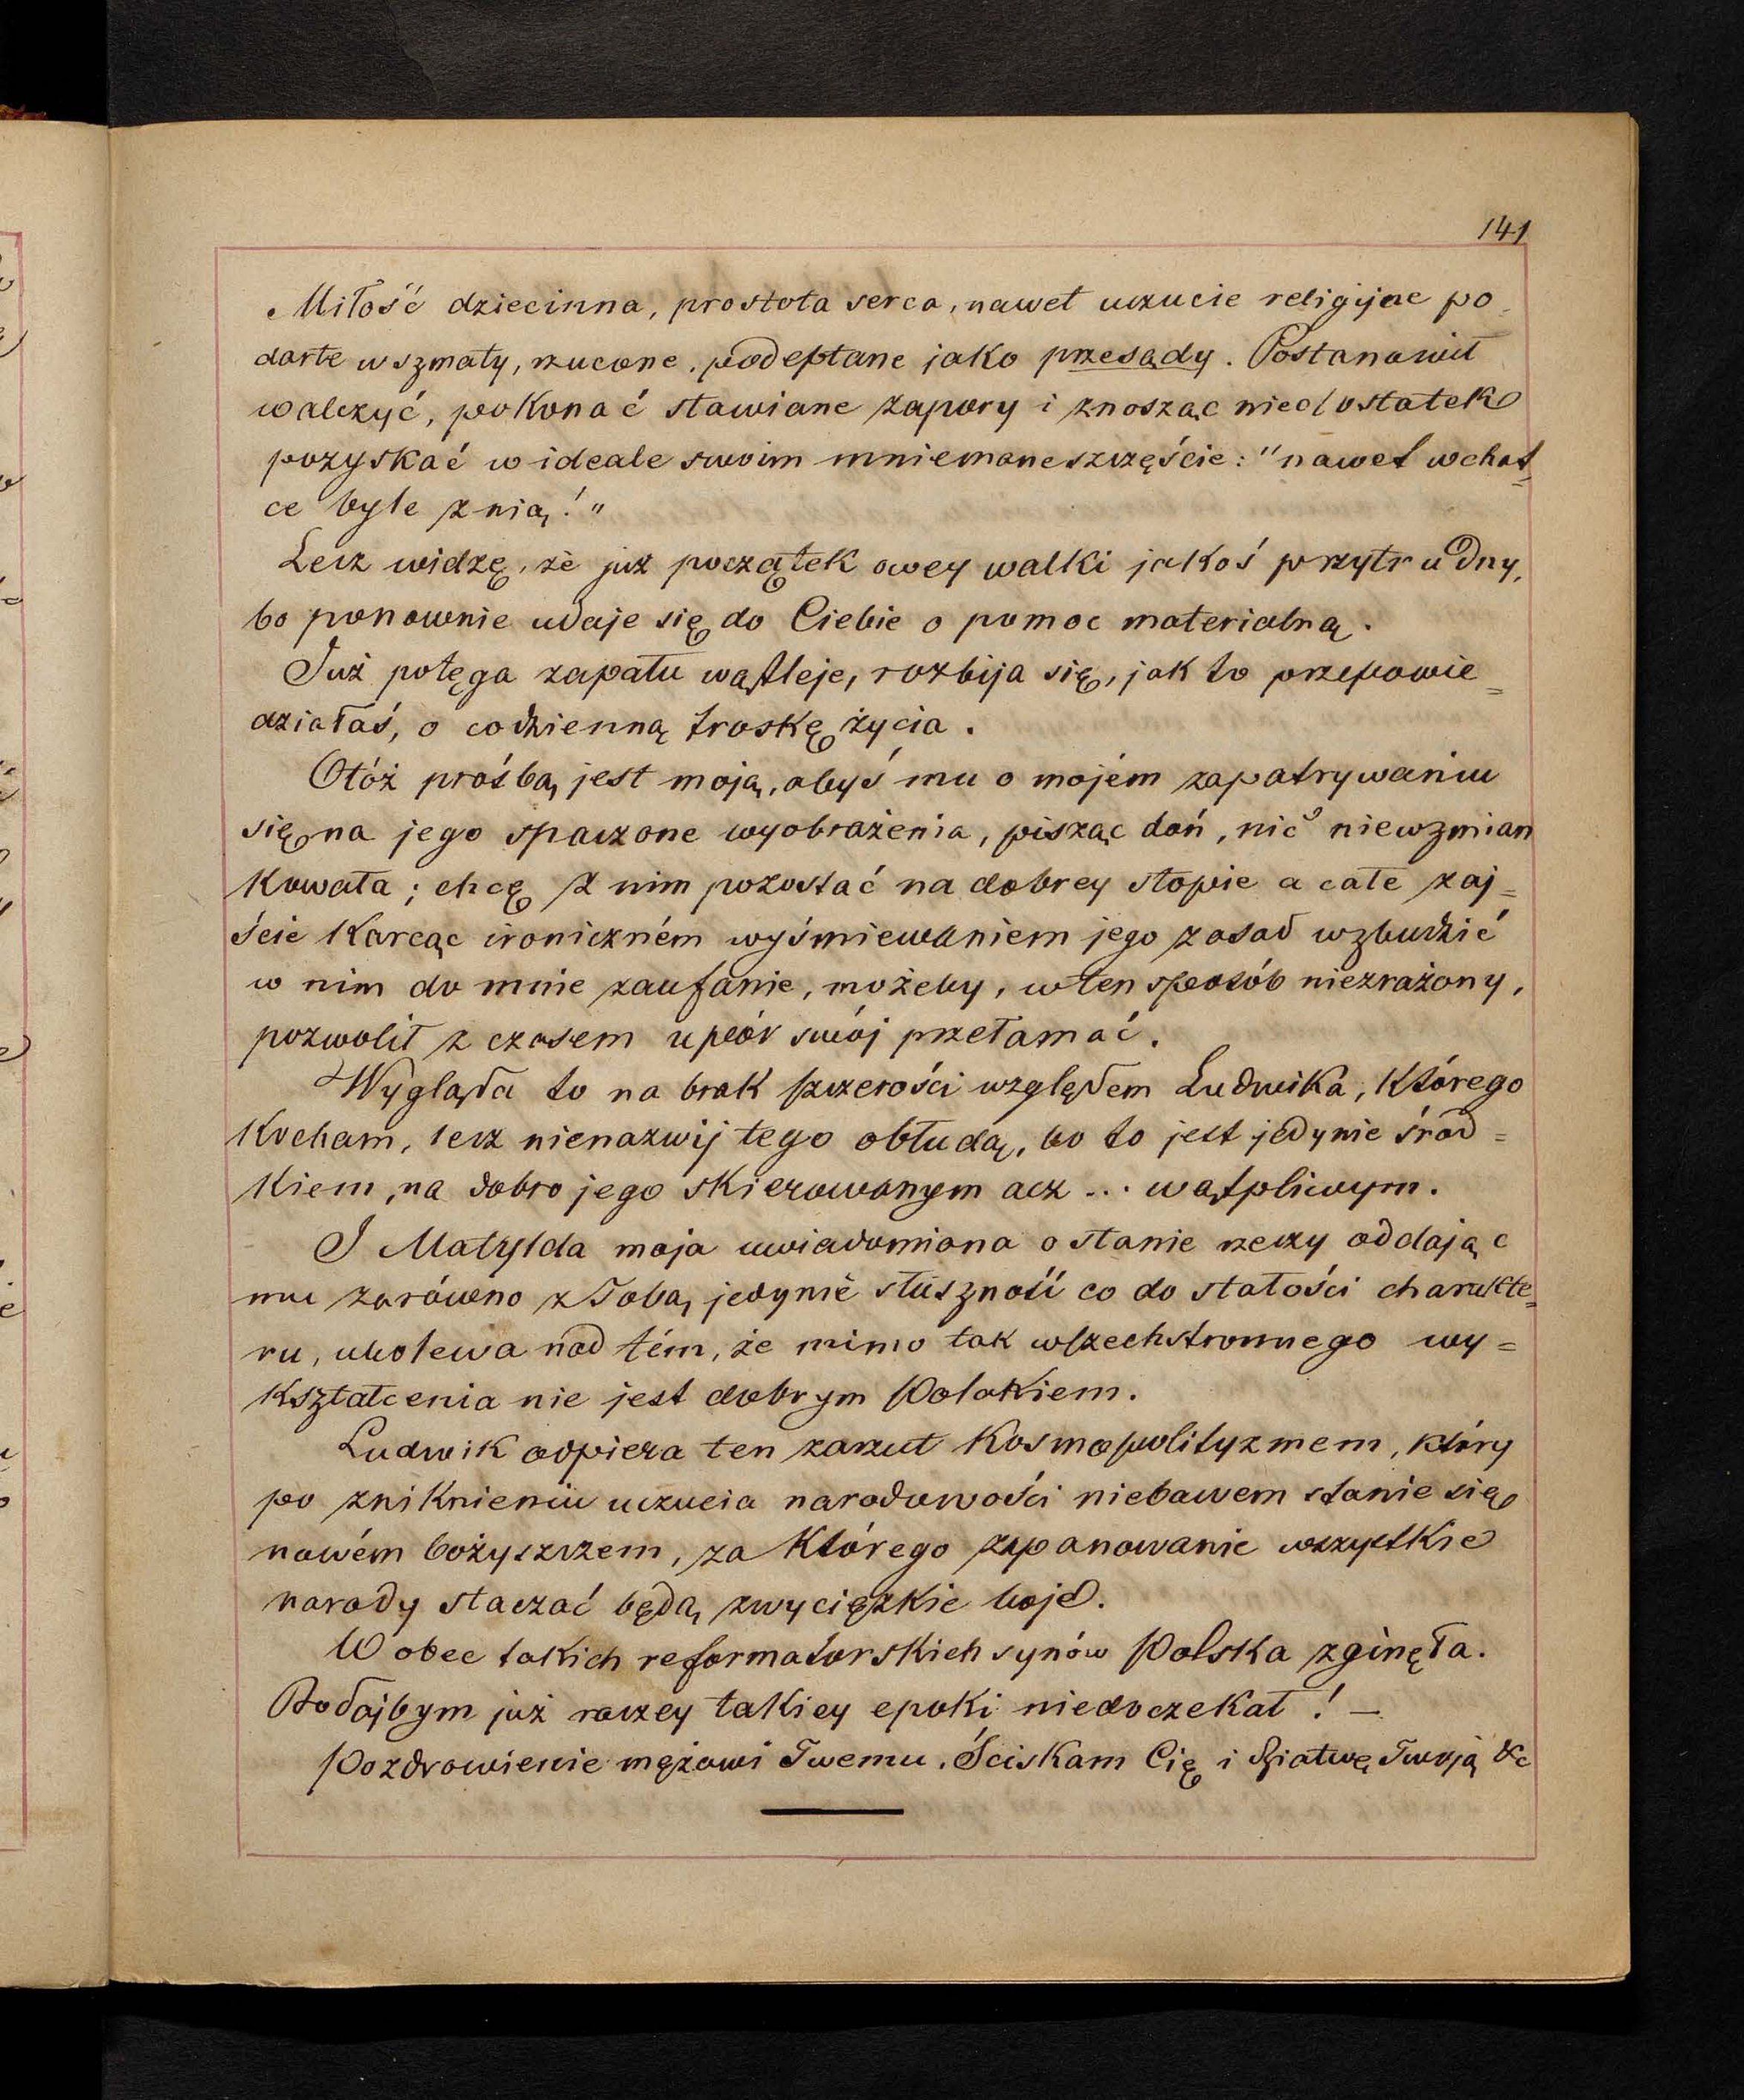 141
Miłość dziecinna, prostota serca, nawet uczucie religijne po-
darte w szmaty, rzucone, podeptane jako przesądy. Postanowił
walczyć, pokonać stawiane zapory i znosząc niedostatek
pozyskać w ideale swoim mniemane szczęście: "nawet w chat=
ce byle z nią!"
Lecz widzę, że już początek owey walki jakoś przytrudny,
bo ponownie udaje się do Ciebie o pomoc materialną.
Już potęga zapału wątleje, rozbija się, jak to przepowie=
działaś, o codzienną troskę życia.
Otóż prośbą jest moją, abyś mu o mojém zapatrywaniu
się na jego spaczone wyobrażenia, pisząc doń, nic niewzmian
kowała; chcę z nim pozostać na dobrey stopie a całe zaj=
ście karcąc ironiczném wyśmiewaniem jego zasad wzbudzić
w nim do mnie zaufanie, możeby, w ten sposób niezrażony,
pozwolił z czasem upór swój przełamać.
Wygląda to na brak szczerości względem Ludwika, którego
kocham, lecz nienazwij tego obłudą, bo to jest jedynie środ=
kiem, na dobro jego skierowanym acz ... wątpliwym.
I Matylda moja uwiadomiona o stanie rzeczy oddając
mu zarówno z Tobą jedynie słuszność co do stałości charakte=
ru, ubolewa nad tém, że mimo tak wszechstronnego wy=
kształcenia nie jest dobrym Polakiem.
Ludwik odpiera ten zarzut kosmopolityzmem, który
po zniknieniu uczucia narodowości niebawem stanie się
nowém bożyszczem, za którego zapanowanie wszystkie
narody staczać będą zwycięzkie boje.
W obec takich reformatorskich synów Polska zginęła.
Bodajbym już raczey takiey epoki niedoczekał! —
Pozdrowienie mężowi Twemu. Ściskam Cię i dziatwę Twoją &c